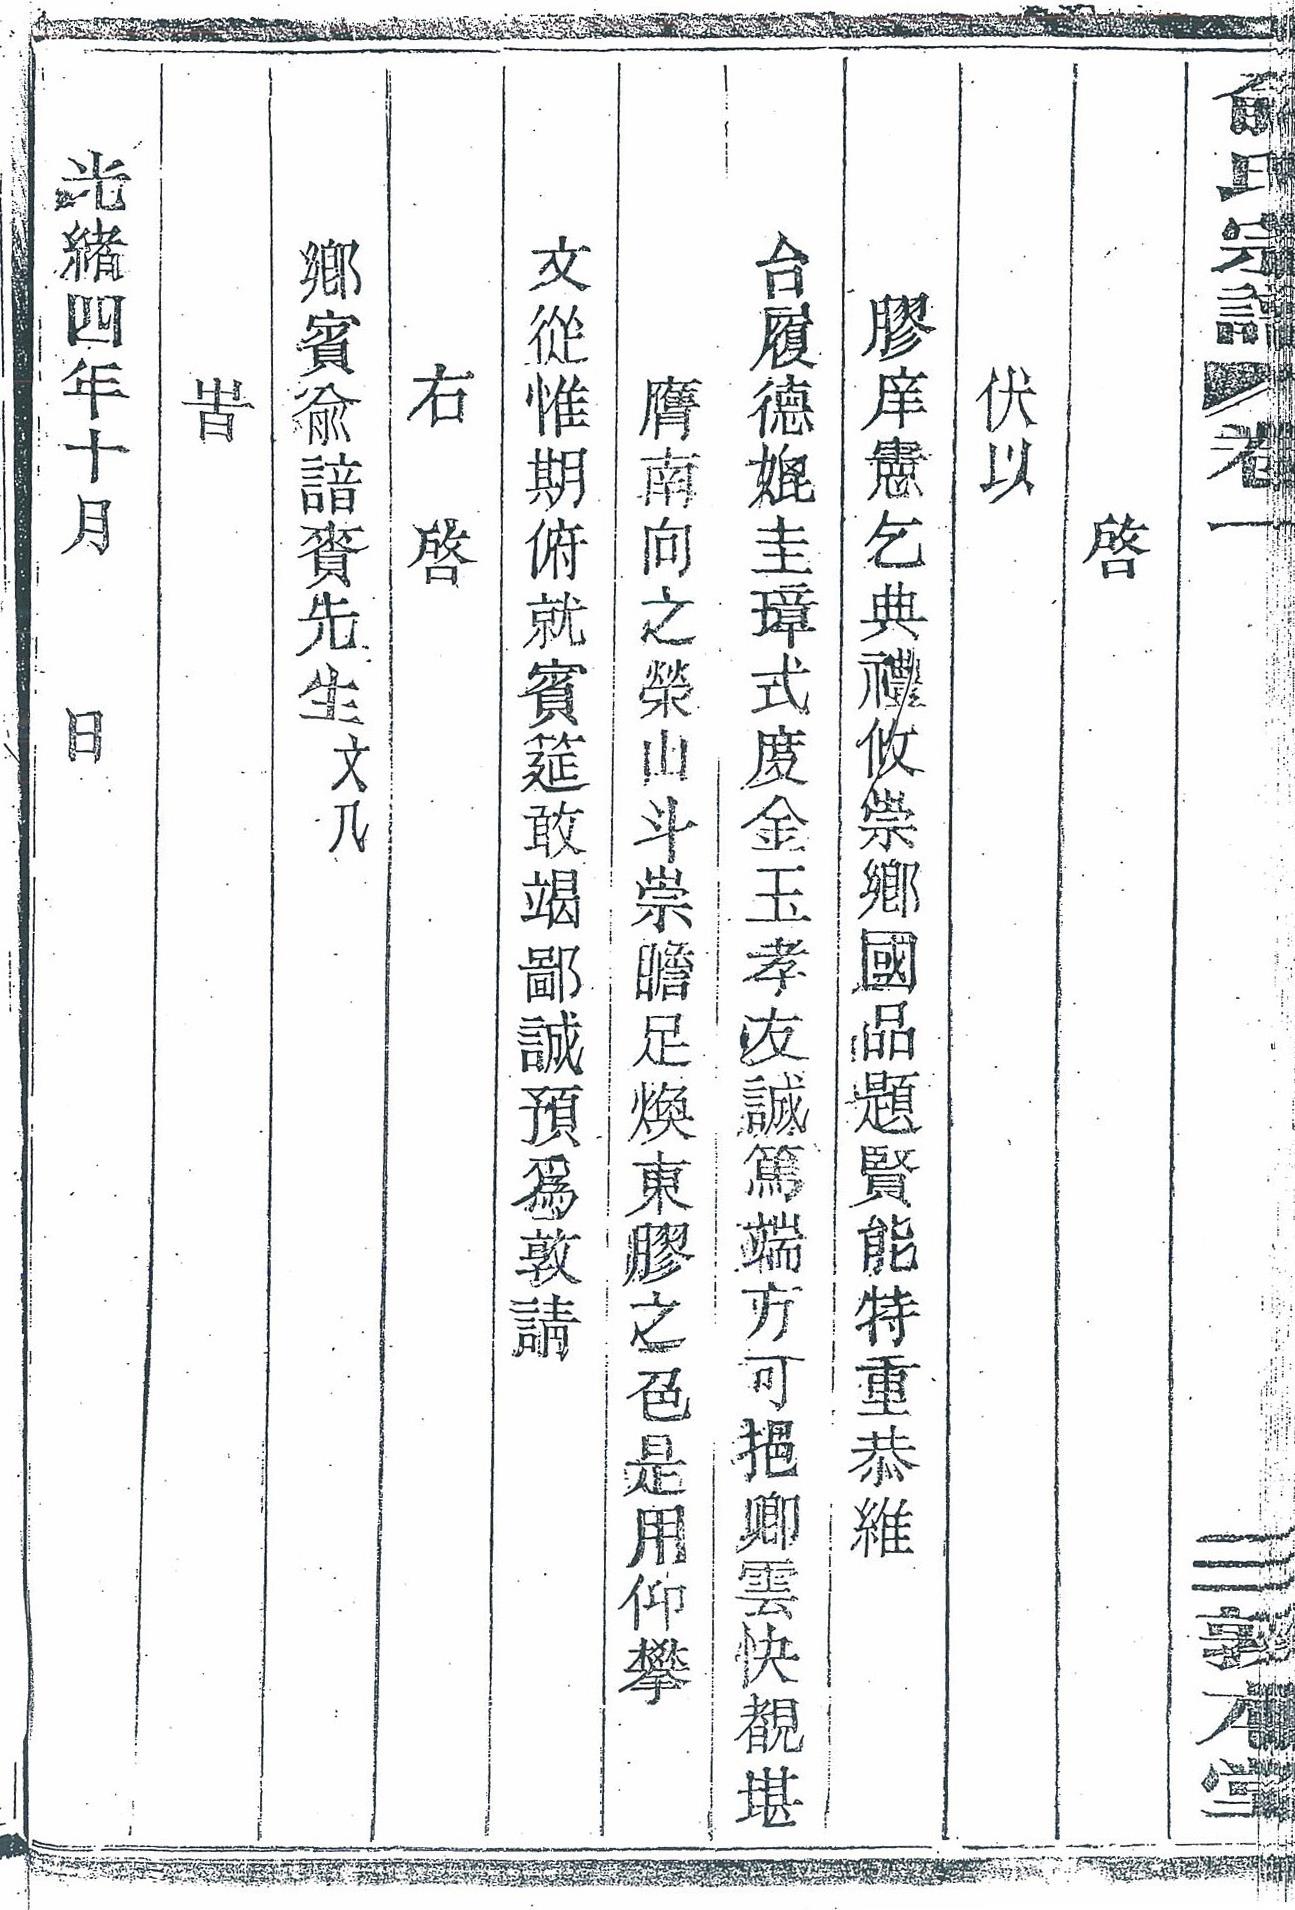 俞氏宗譜 卷一 三 敦本堂
啓
伏以
膠庠憲乞典禮攸崇鄉國品題賢能特重恭維
台履德媲圭璋式度金玉孝友誠篤端方可挹卿雲快覩堪
膺南向之榮山斗崇瞻足煥東膠之色是用仰攀
文從惟期俯就賓筵敢竭鄙誠預爲敦請
右 啓
鄉賓俞諳賚先生文几
旹
光緒四年十月 日